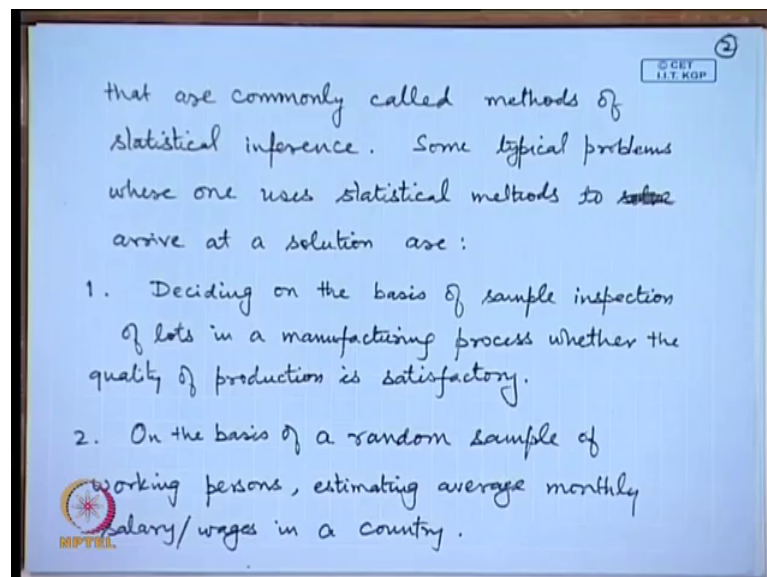 ②
© CET
I.I.T. KGP
that are commonly called methods of
statistical inference. Some typical problems
where one uses statistical methods to
arrive at a solution are:
1. Deciding on the basis of sample inspection
of lots in a manufacturing process whether the
quality of production is satisfactory.
2. On the basis of a random sample of
working persons, estimating average monthly
salary/wages in a country.
NPTEL